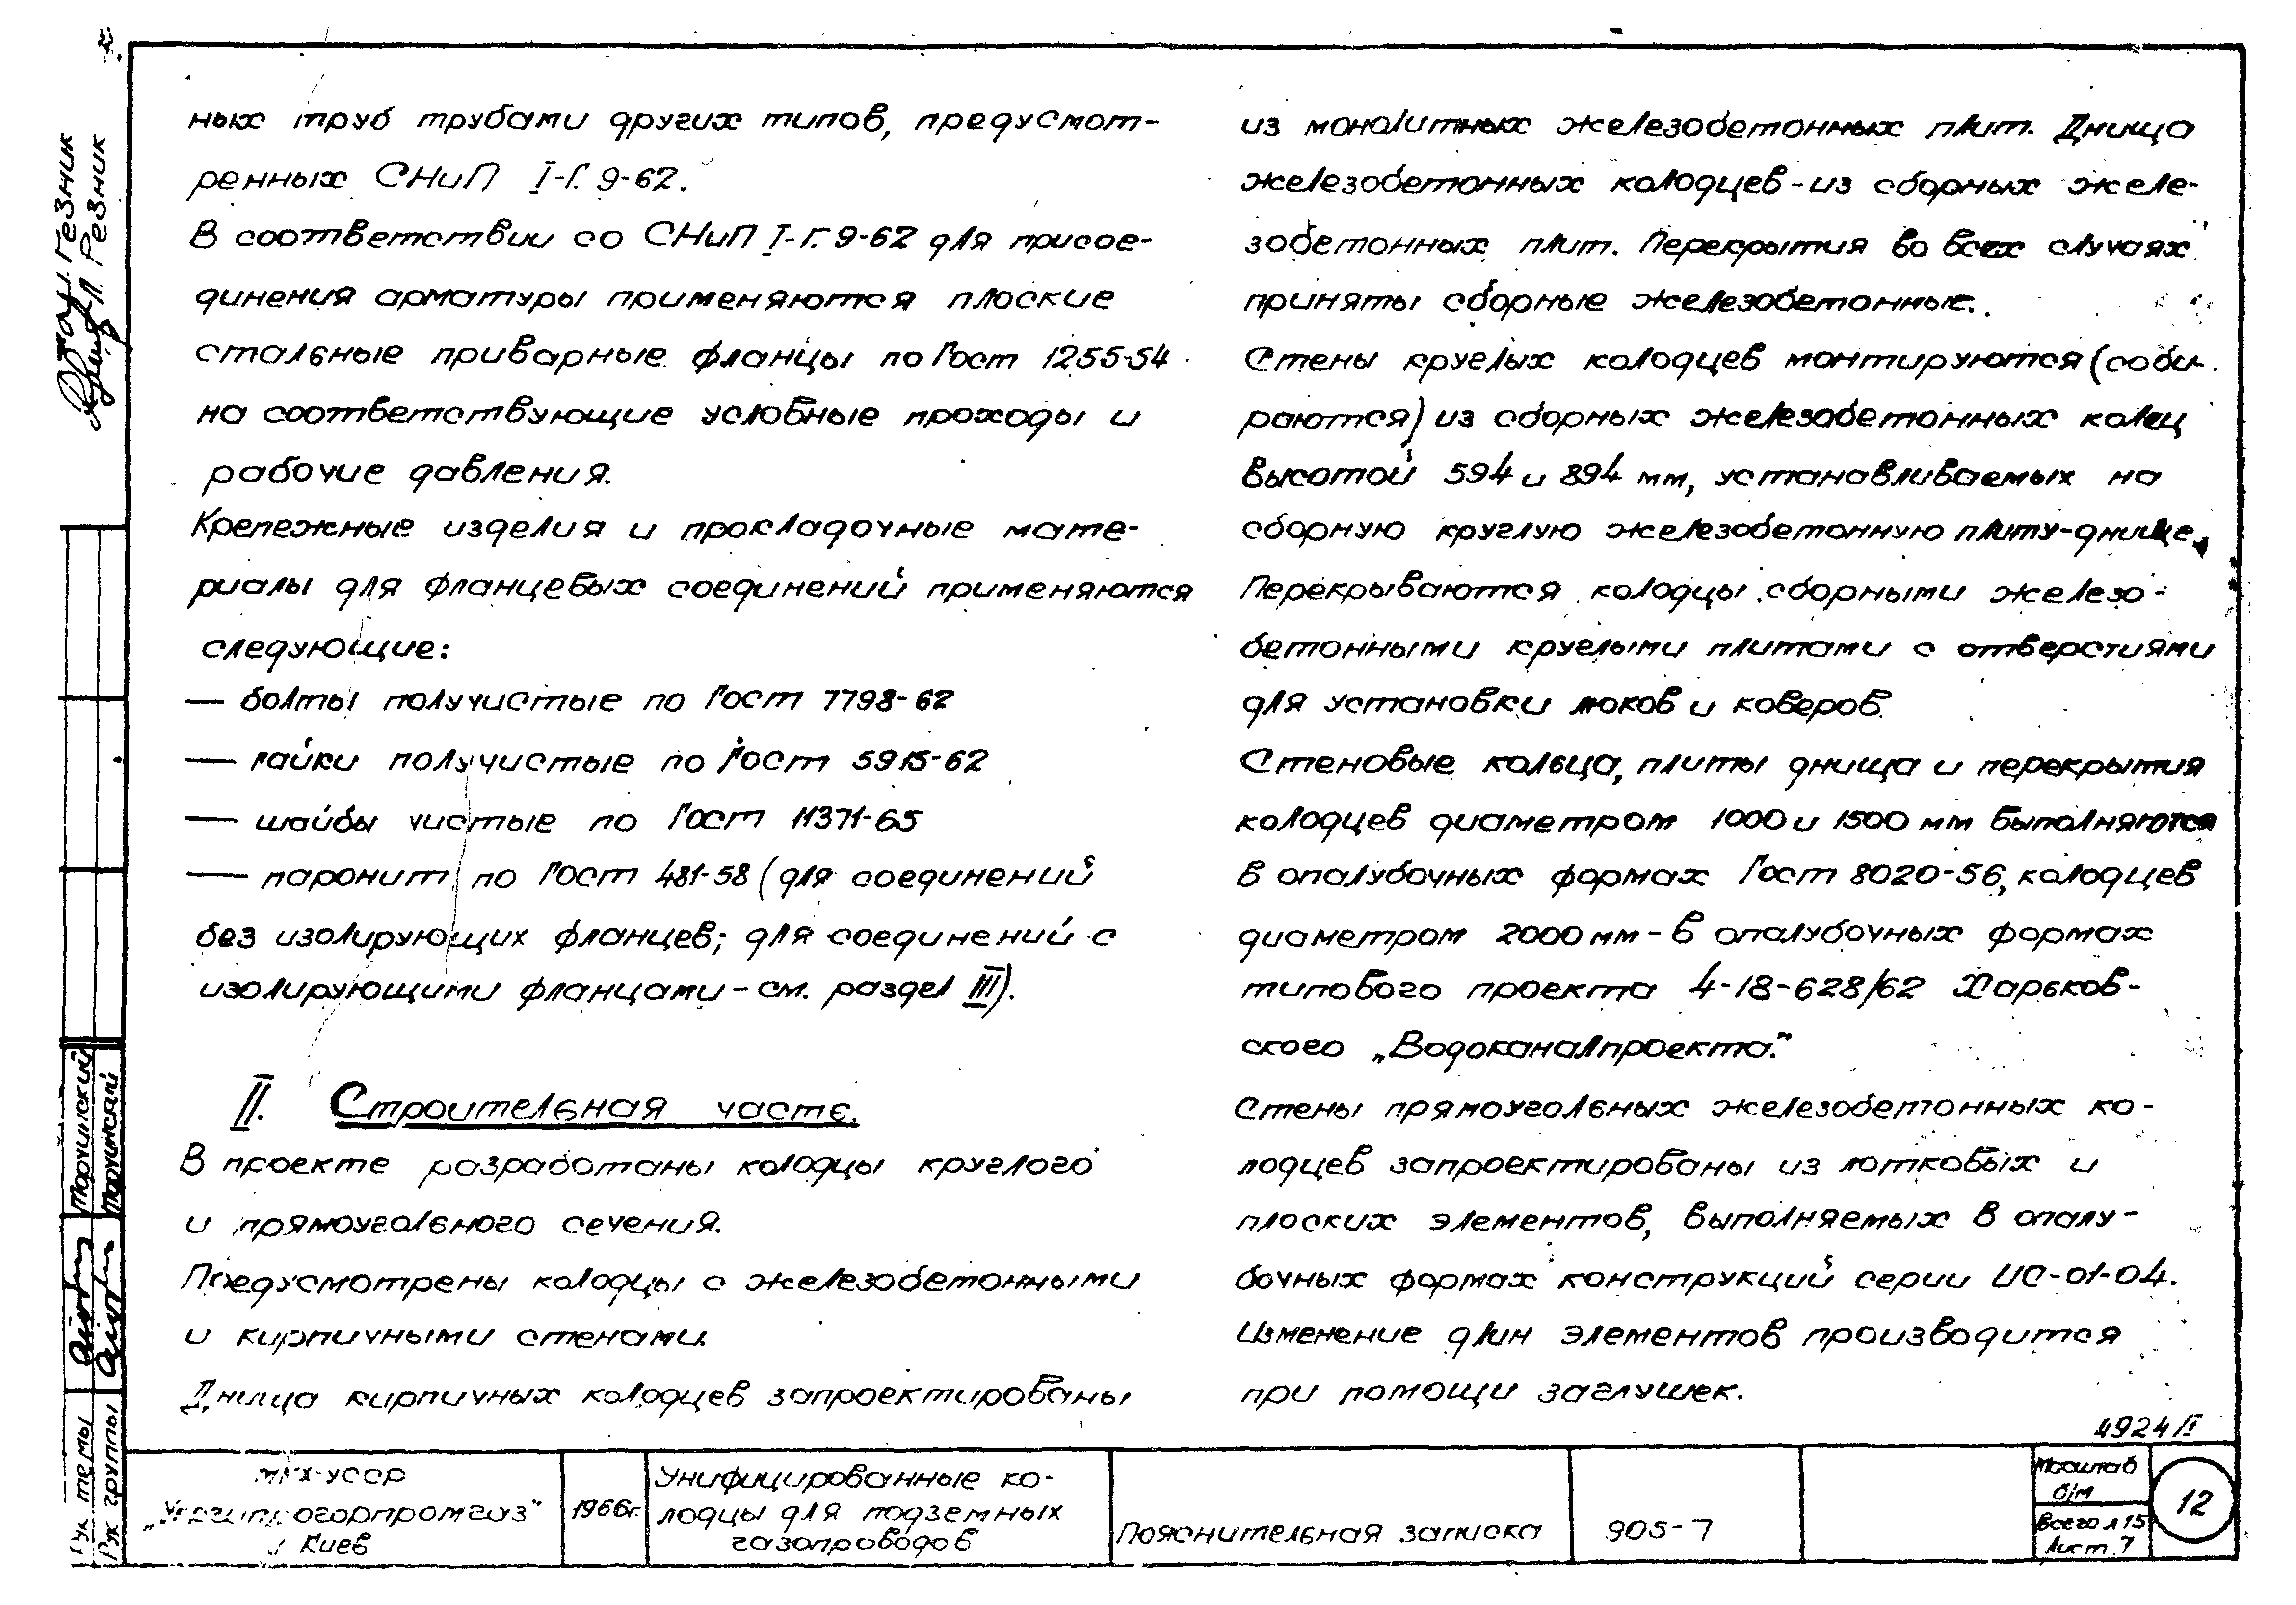 ных труб трубами других типов, предусмот-
ренных СНиП I-Г. 9-62.
В соответствии со СНиП I-Г. 9-62 для присое-
динения арматуры применяются плоские
стальные приварные фланцы по Гост 1255-54
на соответствующие условные проходы и
рабочие давления.
Крепежные изделия и прокладочные мате-
риалы для фланцевых соединений применяются
следующие:
— болты получистые по Гост 7798-62
— гайки получистые по Гост 5915-62
— шайбы чистые по Гост 11371-65
— паронит по Гост 481-58 (для соединений
без изолирующих фланцев; для соединений с
изолирующими фланцами - см. раздел III).
II. Строительная часть.
В проекте разработаны колодцы круглого
и прямоугольного сечения.
Предусмотрены колодцы с железобетонными
и кирпичными стенами.
Днища кирпичных колодцев запроектированы
из монолитных железобетонных плит. Днища
железобетонных колодцев - из сборных желе-
зобетонных плит. Перекрытия во всех случаях
приняты сборные железобетонные.
Стены круглых колодцев монтируются (соби-
раются) из сборных железобетонных колец
высотой 594 и 894 мм, устанавливаемых на
сборную круглую железобетонную плиту-днище.
Перекрываются колодцы сборными железо-
бетонными круглыми плитами с отверстиями
для установки люков и коверов.
Стеновые кольца, плиты днища и перекрытия
колодцев диаметром 1000 и 1500 мм выполняются
в опалубочных формах Гост 8020-56, колодцев
диаметром 2000 мм - в опалубочных формах
типового проекта 4-18-628/62 Харьков-
ского „Водоканалпроекта."
Стены прямоугольных железобетонных ко-
лодцев запроектированы из лотковых и
плоских элементов, выполняемых в опалу-
бочных формах конструкций серии ИС-01-04.
Изменение длин элементов производится
при помощи заглушек.
4924/I
МКХ-УССР
„Укргипрогорпромгаз"
Киев
1966г.
Унифицированные ко-
лодцы для подземных
газопроводов
Пояснительная записка
905-7
Масштаб
б/м
Всего л 15
Лист 7
12
Резник
Резник
Торчинский
Торчинский
Рук темы
Рук группы